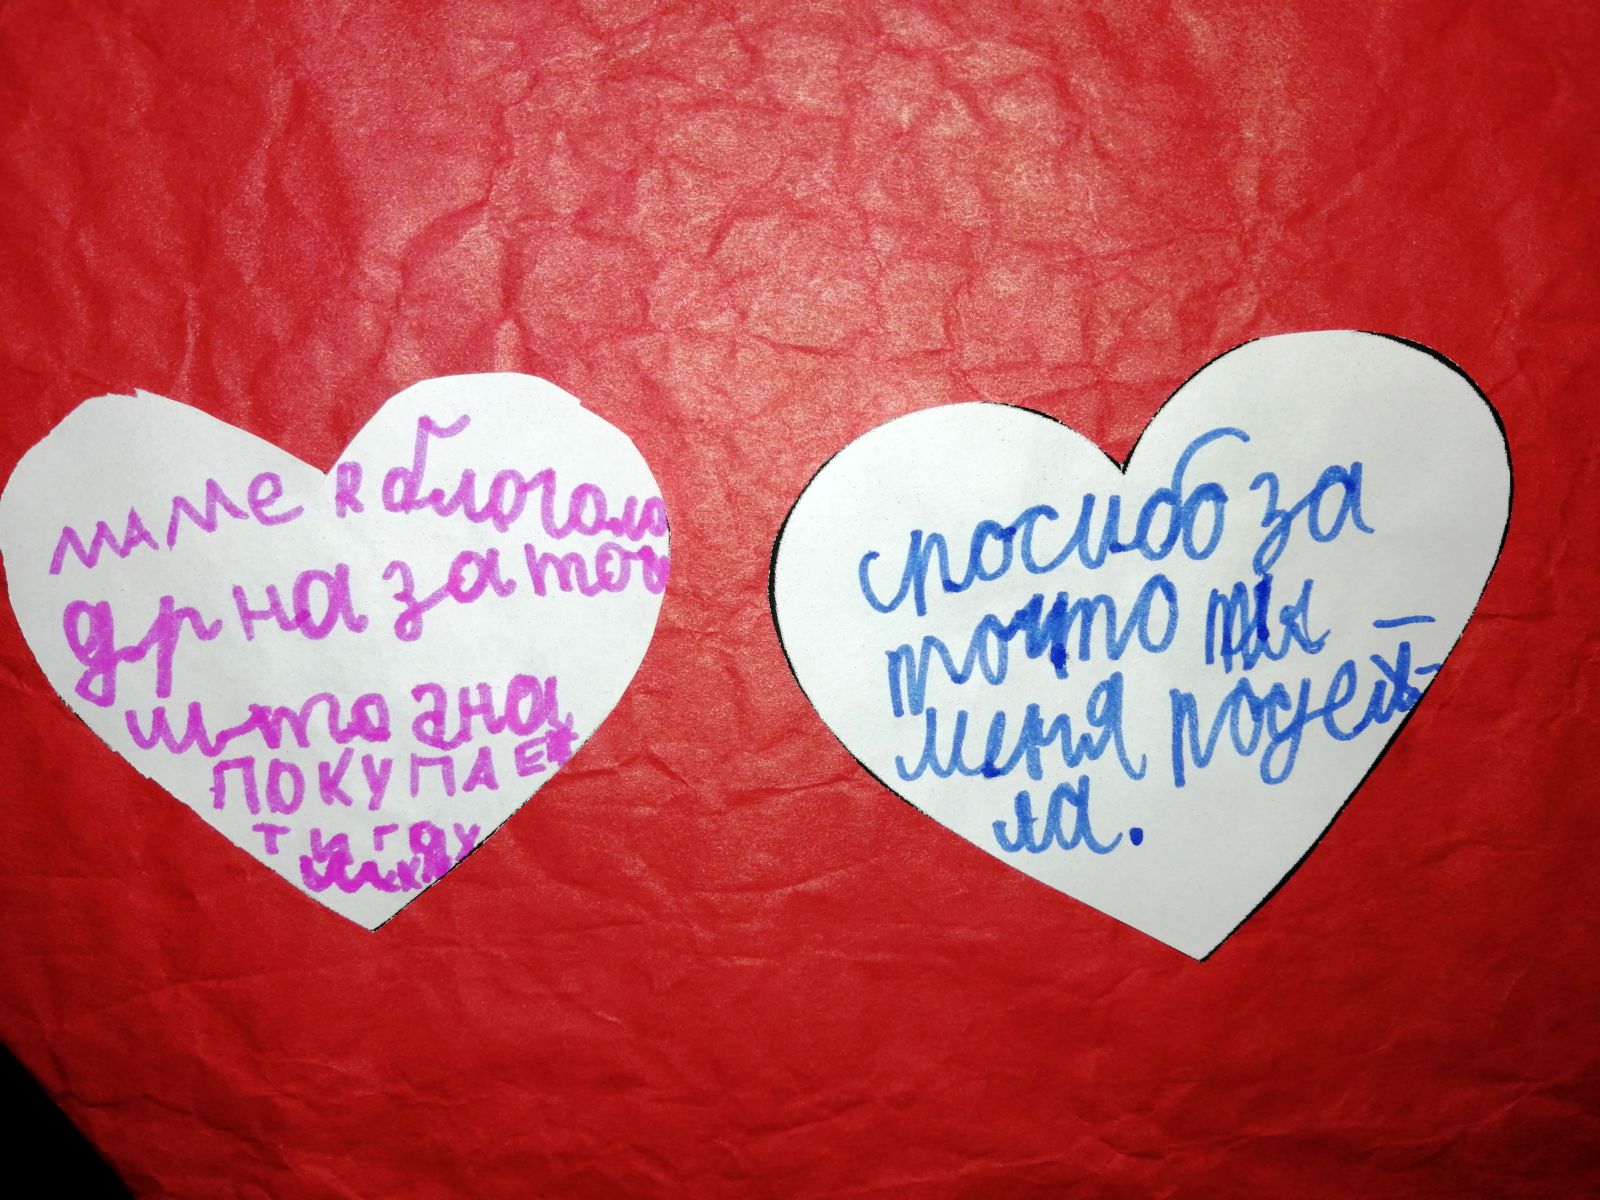 маме я благода
дрна за точ
што ана
ПОКУПАЕТ
спосибо за
точто ты
меня родей-
ла.